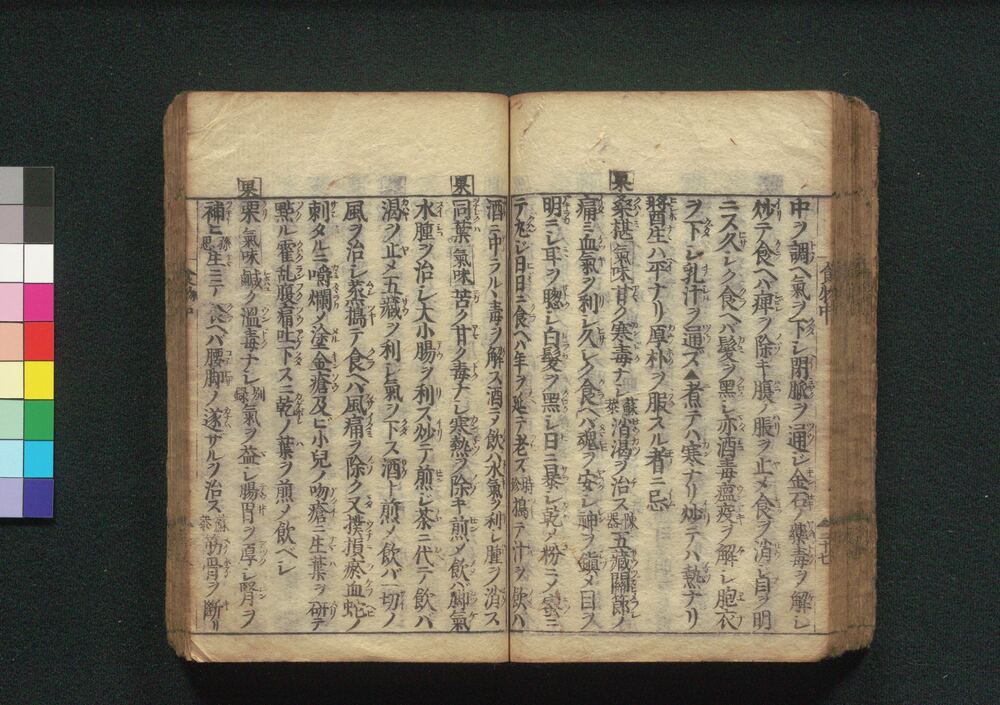 中ヲ調ヘ氣ヲ下シ閉脈ヲ通シ金石ノ藥毒ヲ解シ
炒テ食ヘハ痺ヲ除キ脹ノ脹ヲ止メ食ヲ消シ目ヲ明
ニス久シク食ヘバ髪ヲ黑シ亦酒毒瘟疫ヲ解シ胞衣
ヲ下シ乳汁ヲ通ズ▲煮テハ寒ナリ炒テハ熱ナリ
醬生ハ平ナリ厚朴ヲ服スル者ニ忌
果
桑椹 氣味 甘ク寒毒ナシ蘇恭 消渇ヲ治ス陳器 五藏關節ノ
痛ミ血氣ヲ利シ久シク食ヘハ魂ヲ安シ神ヲ鎭メ目ヲ
明ニシ耳ヲ聰シ白髮ヲ黑シ日ニ暴シ乾メ粉ニメ蜜ニ
テ丸シ日日ニ食ヘハ年ヲ延テ老ズ時珍 搗テ汁ヲ飲ハ
酒ニ中ラルヽ毒ヲ解ス酒テ飲ハ水氣ヲ利シ腫ヲ消ス
果
同葉 氣味 苦ク甘ク毒ナシ寒熱ヲ除キ煎メ飲ハ脚氣
水腫ヲ治シ大小腸ヲ利ス炒テ煎シ茶ニ代テ飲ハ
渴ヲ止メ五藏ヲ利シ氣ヲ下ス酒ト煎メ飲バ一切ノ
風ヲ治シ蒸搗テ食ヘハ風痛ヲ除ク又撲損瘀血蛇ノ
刺タルニ嚼爛メ塗金瘡及ヒ小兒ノ吻瘡ニ生葉ヲ研テ
點ル霍乱腹痛吐下スニ乾ノ葉ヲ煎メ飲ベシ
果
栗 氣味 鹹ク溫毒ナシ別錄 氣ヲ益シ腸胃ヲ厚シ腎ヲ
補ヒ孫思 生ニテ食ヘバ腰脚ノ遂サルヲ治ス蘇恭 筋骨ヲ斷リ
食物中